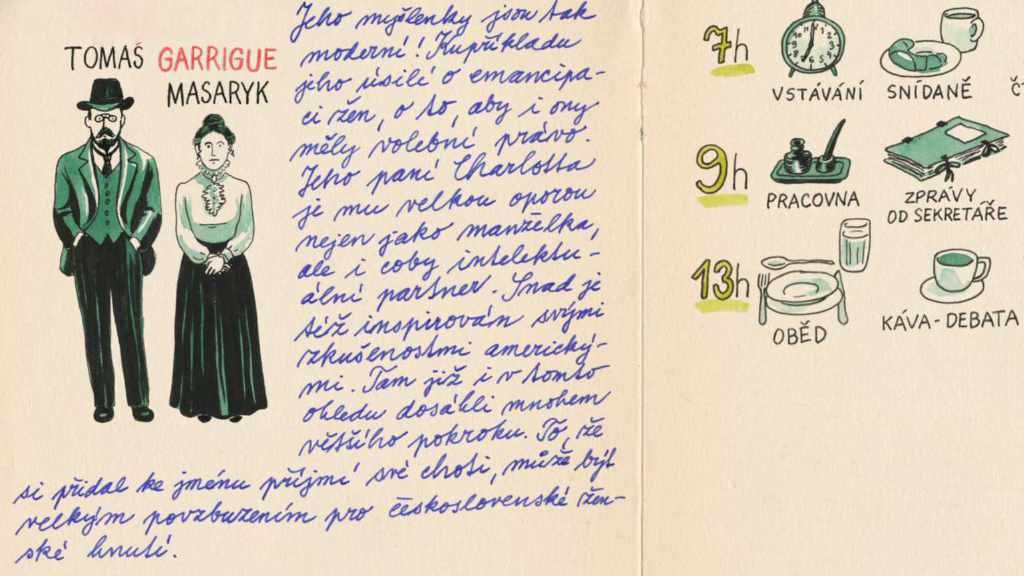 TOMAŠ GARRIGUE
MASARYK
Jeho myšlenky jsou tak
moderní! Kupříkladu
jeho úsilí o emancipa-
ci žen, o to, aby i ony
měly volební právo.
Jeho paní Charlotta
je mu velkou oporou
nejen jako manželka,
ale i coby intelektu-
ální partner. Snad je
též inspirován svými
zkušenostmi americký-
mi. Tam již i v tomto
ohledu dosáhli mnohem
většího pokroku. To, že
si přidal ke jménu příjmí své choti, může být
velkým povzbuzením pro československé žen-
ské hnutí.
7h
VSTÁVÁNÍ SNÍDANĚ
9h
PRACOVNA
ZPRÁVY
OD SEKRETÁŘE
13h
OBĚD
KÁVA-DEBATA